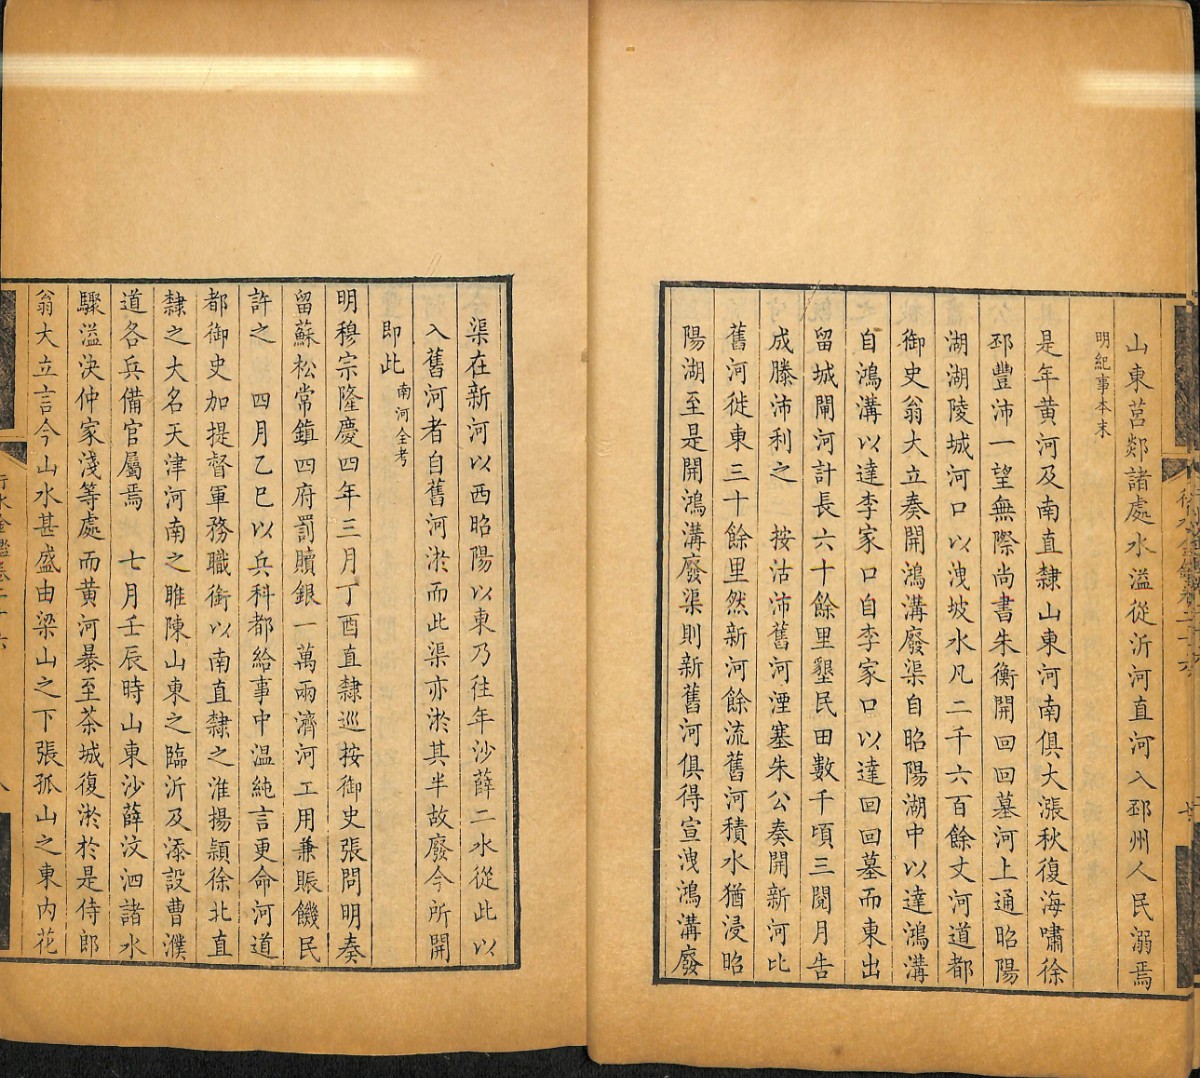 山東莒郯諸處水溢從沂河直河入邳州人民溺焉
明紀事本末
是年黄河及南直隸山東河南俱大漲秋復海嘯徐
邳豐沛一望無際尚書朱衡開回回墓河上通昭陽
湖湖陵城河口以洩坡水凡二千六百餘丈河道都
御史翁大立奏開鴻溝廢渠自昭陽湖中以達鴻溝
自鴻溝以達李家口自李家口以達回回墓而東出
留城閘河計長六十餘里墾民田數千頃三閱月告
成滕沛利之　按沽沛舊河湮塞朱公奏開新河比
舊河徙東三十餘里然新河餘流舊河積水猶浸昭
陽湖至是開鴻溝廢渠則新舊河俱得宣洩鴻溝廢
渠在新河以西昭陽以東乃往年沙薛二水從此以
入舊河者自舊河淤而此渠亦淤其半故廢今所開
即此　南河全考
明穆宗隆慶四年三月丁酉直隸巡按御史張問明奏
留蘇松常鎮四府罰贖銀一萬兩濟河工用兼賑饑民
許之　四月乙巳以兵科都給事中温純言更命河道
都御史加提督軍務職銜以南直隸之淮揚頴徐北直
隸之大名天津河南之睢陳山東之臨沂及添設曹濮
道各兵備官屬焉　七月壬辰時山東沙薛汶泗諸水
驟溢決仲家淺等處而黄河暴至茶城復淤於是侍郎
翁大立言今山水甚盛由梁山之下張孤山之東内花
行水金鑑卷二十六